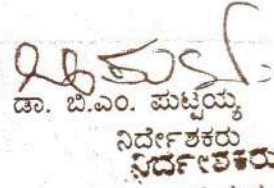 ಡಾ. ಬಿ.ಎಂ. ಪುಟ್ಟಯ್ಯ
ನಿರ್ದೇಶಕರು
ನಿರ್ದೇಶಕರು